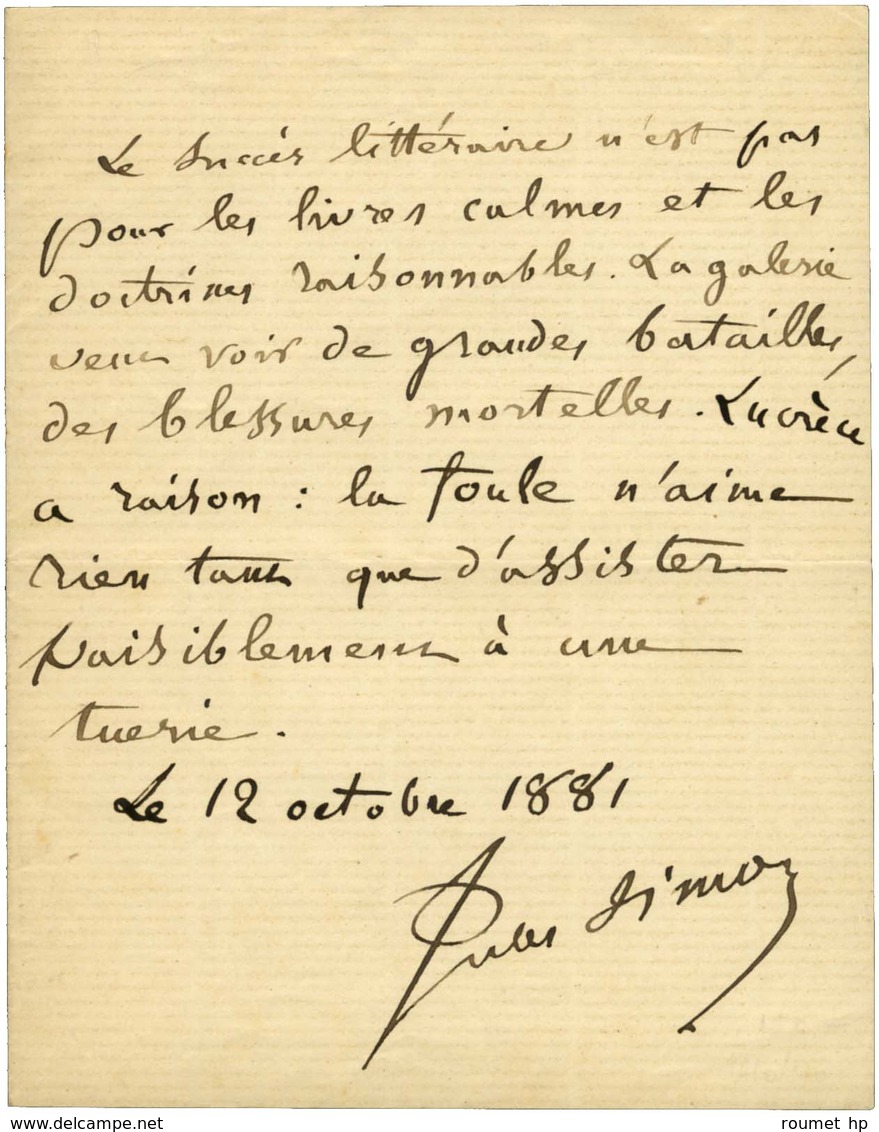 Le succès littéraire n'est pas
pour les livres calmes et les
doctrines raisonnables. La galerie
veut voir de grandes batailles,
des blessures mortelles. Lucrèce
a raison : la foule n'aime
rien tant que d'assister
paisiblement à une
tuerie.
Le 12 octobre 1881
Jules Simon
www.delcampe.net
roumet hp